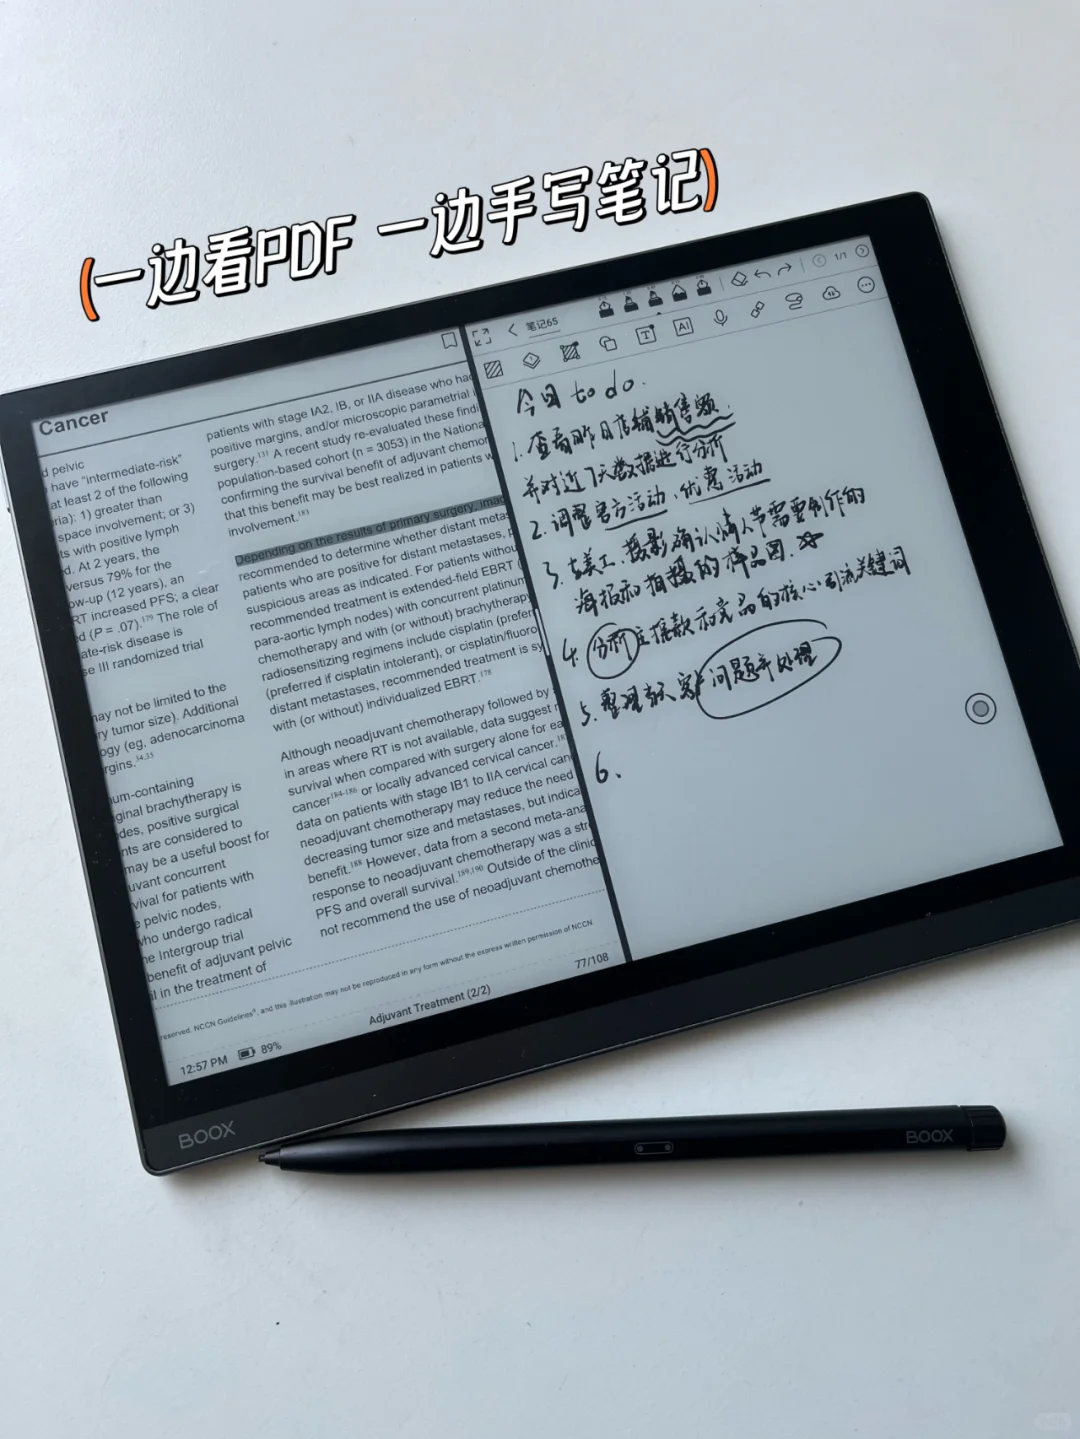 (一边看PDF 一边手写笔记)
Cancer
d pelvic
have "intermediate-risk"
at least 2 of the following
ria): 1) greater than
space involvement; or 3)
ts with positive lymph
d. At 2 years, the
versus 79% for the
ow-up (12 years), an
RT increased PFS; a clear
d (P = .07).179 The role of
ate-risk disease is
se III randomized trial
may not be limited to the
ry tumor size). Additional
ogy (eg, adenocarcinoma
rgins.34,35
num-containing
ginal brachytherapy is
des, positive surgical
nts are considered to
may be a useful boost for
uvant concurrent
vival for patients with
e pelvic nodes,
who undergo radical
he Intergroup trial
benefit of adjuvant pelvic
il in the treatment of
patients with stage IA2, IB, or IIA disease who had
positive margins, and/or microscopic parametrial
surgery.131 A recent study re-evaluated these findi
population-based cohort (n = 3053) in the Nationa
confirming the survival benefit of adjuvant chemor
that this benefit may be best realized in patients w
involvement.183
Depending on the results of primary surgery, imag
recommended to determine whether distant metas
patients who are positive for distant metastases, p
suspicious areas as indicated. For patients withou
recommended treatment is extended-field EBRT (
para-aortic lymph nodes) with concurrent platinum
chemotherapy and with (or without) brachytherapy
radiosensitizing regimens include cisplatin (prefer
(preferred if cisplatin intolerant), or cisplatin/fluoro
distant metastases, recommended treatment is sy
with (or without) individualized EBRT.178
Although neoadjuvant chemotherapy followed by
in areas where RT is not available, data suggest
survival when compared with surgery alone for ea
cancer184-186 or locally advanced cervical cancer.
data on patients with stage IB1 to IIA cervical can
neoadjuvant chemotherapy may reduce the need
decreasing tumor size and metastases, but indica
benefit.188 However, data from a second meta-ana
response to neoadjuvant chemotherapy was a str
PFS and overall survival.189,190 Outside of the clinic
not recommend the use of neoadjuvant chemothe
reserved. NCCN Guidelines®, and this illustration may not be reproduced in any form without the express written permission of NCCN
77/108
Adjuvant Treatment (2/2)
12:57 PM 89%
笔记65
1/1
T
AI
今日 to do.
1. 查看昨日店铺销售额.
并对近7天数据进行分析
2. 调整官方活动、优惠活动
3. 美工、摄影确认情人节需要制作的
海报和拍摄的样品图.
4. 分析主推款和竞品的核心引流关键词
5. 整理客户问题并处理
6.
BOOX
BOOX